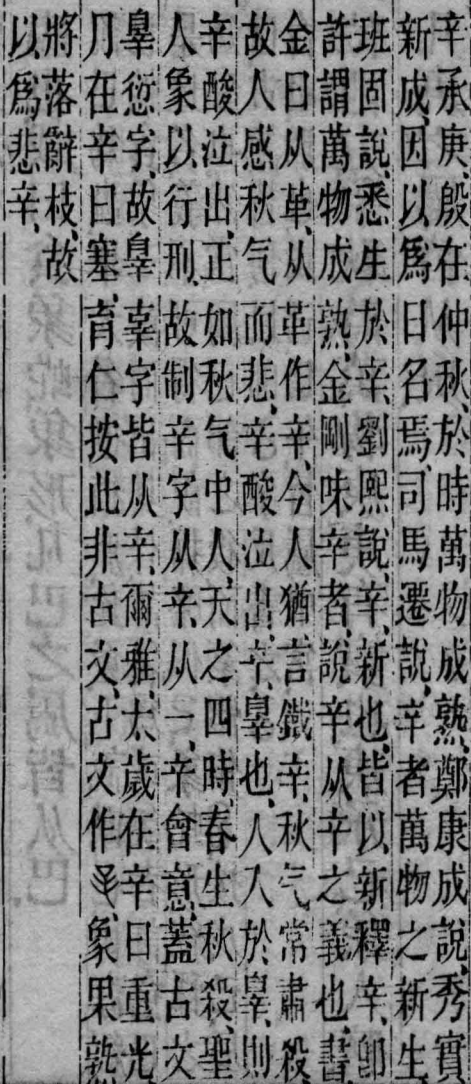 辛承庚、殷在仲秋於時萬物成熟、鄭康成說、秀實
新成、因以爲日名焉、司馬遷說、辛者萬物之新生
班固說、悉生於辛、劉熙說、辛、新也、皆以新釋辛、卽
許謂萬物成熟、金剛味辛者、說辛从辛之義也、書
金曰从革、从革作辛、今人猶言鐵辛、秋气常肅殺、
故人感秋气而悲、辛酸泣出、辛、辠也、人入於辠、則
辛酸泣出、正如秋气中人、天之四時、春生秋殺、聖
人象以行刑、故制辛字、从辛、从一、辛會意、蓋古文
辠愆字、故辠辜字皆从辛、爾雅、太歲在辛曰重光、
月在辛曰塞、育仁按此非古文、古文作、象果孰
將落辭枝、故
以爲悲辛、